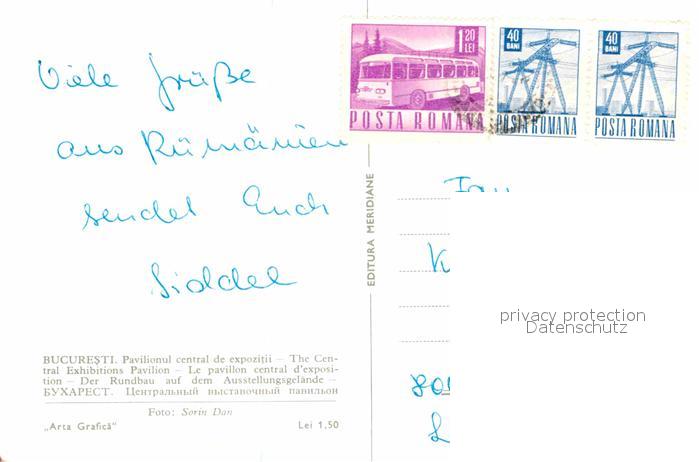 Viele Grüße
aus Rumänien
sendet Euch
1 20
LEI
POSTA ROMANA
40
BANI
POSTA ROMANA
40
BANI
POSTA ROMANA
EDITURA MERIDIANE
privacy protection
Datenschutz
BUCUREȘTI. Pavilionul central de expoziții – The Cen-
tral Exhibitions Pavilion – Le pavillon central d'exposi-
tion – Der Rundbau auf dem Ausstellungsgelände –
БУХАРЕСТ. Центральный выставочный павильон
Foto: Sorin Dan
„Arta Grafică" Lei 1,50